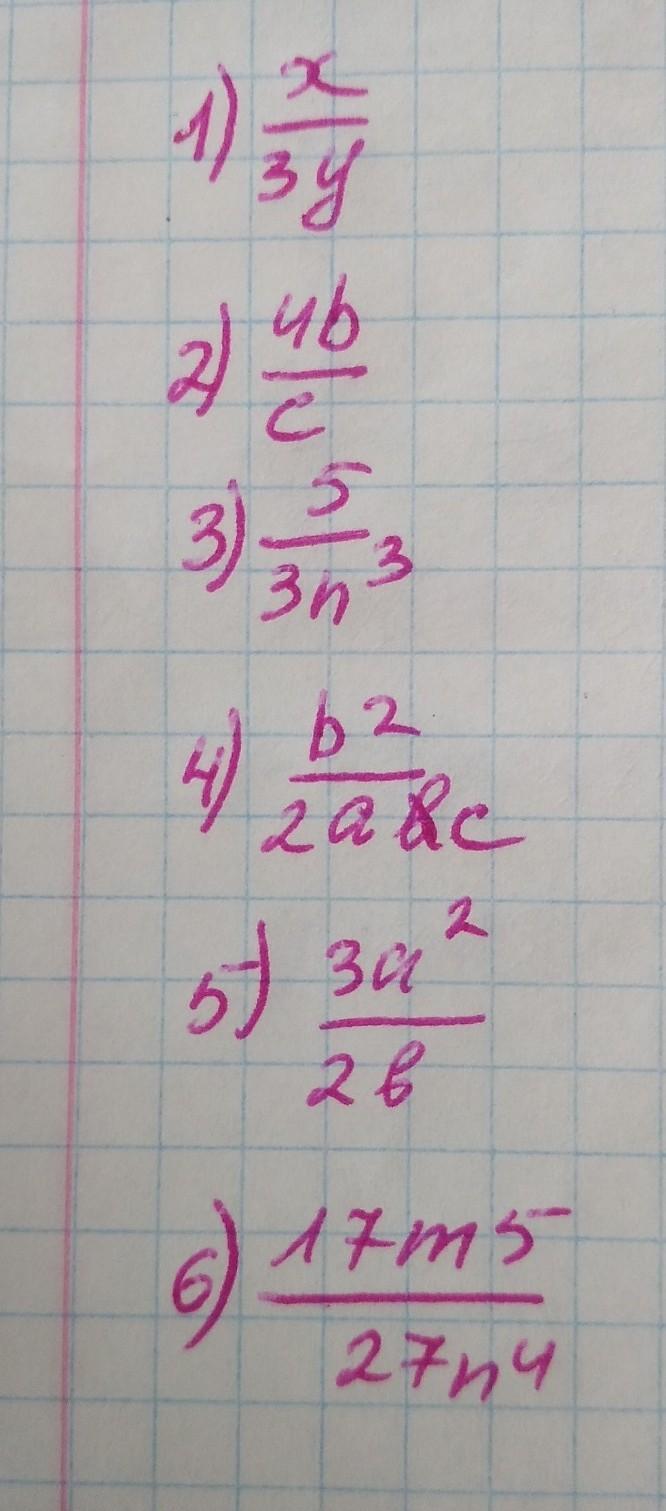 1) x
3y
2) 4b
c
3) 5
3n³
4) b²
2a c
5) 3a²
2b
6) 17m5
27n4